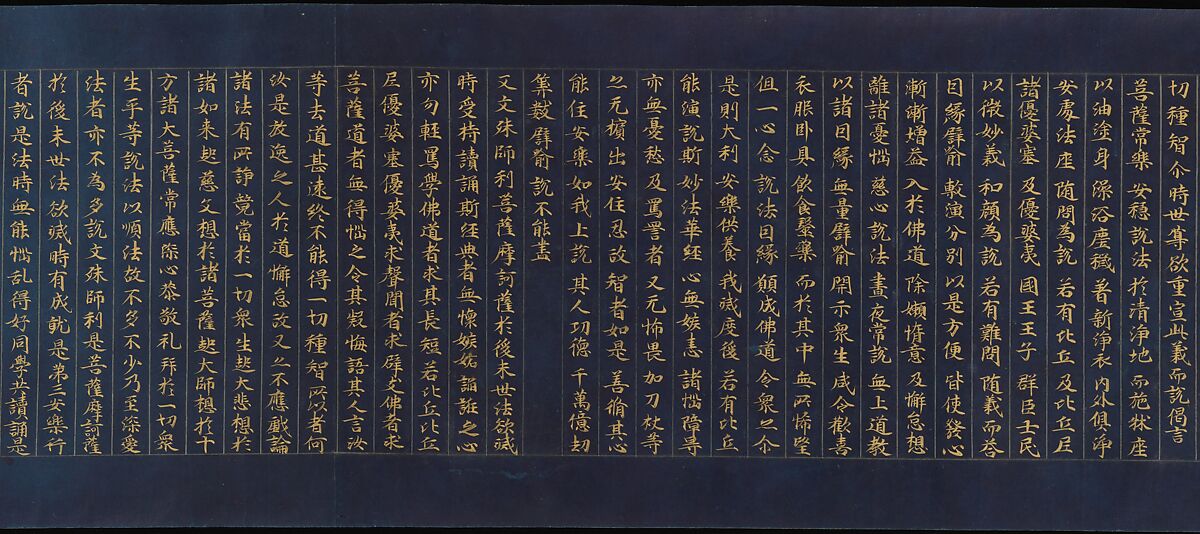 切種智尒時世尊欲重宣此義而說偈言
菩薩常樂 安穏說法 於清淨地 而施牀座
以油塗身 澡浴塵穢 著新淨衣 內外俱淨
安處法座 随問為說 若有比丘 及比丘尼
諸優婆塞 及優婆夷 國王王子 群臣士民
以微妙義 和顏為說 若有難問 随義而荅
因緣譬喻 敷演分別 以是方便 皆使發心
漸漸增益 入於佛道 除嬾惰意 及懈怠想
離諸憂惱 慈心說法 晝夜常說 無上道教
以諸因緣 無量譬喻 開示衆生 咸令歡喜
衣服卧具 飲食醫藥 而於其中 無所悕望
但一心念 說法因緣 願成佛道 令衆亦尒
是則大利 安樂供養 我滅度後 若有比丘
能演說斯 妙法華經 心無嫉恚 諸惱障㝵
亦無憂愁 及罵詈者 又无怖畏 加刀杖等
亦无擯出 安住忍故 智者如是 善脩其心
能住安樂 如我上說 其人功德 千萬億劫
筭數譬喻 說不能盡
又文殊師利菩薩摩訶薩於後末世法欲滅
時受持讀誦斯經典者無懷嫉妬諂誑之心
亦勿輕罵學佛道者求其長短若比丘比丘
尼優婆塞優婆夷求聲聞者求辟支佛者求
菩薩道者無得惱之令其疑悔語其人言汝
等去道甚遠終不能得一切種智所以者何
汝是放逸之人於道懈怠故又亦不應戲論
諸法有所諍競當於一切衆生起大悲想於
諸如来起慈父想於諸菩薩起大師想於十
方諸大菩薩常應深心恭敬礼拜於一切衆
生平等說法以順法故不多不少乃至深愛
法者亦不為多說文殊師利是菩薩摩訶薩
於後末世法欲滅時有成就是第三安樂行
者說是法時無能惱乱得好同學共讀誦是